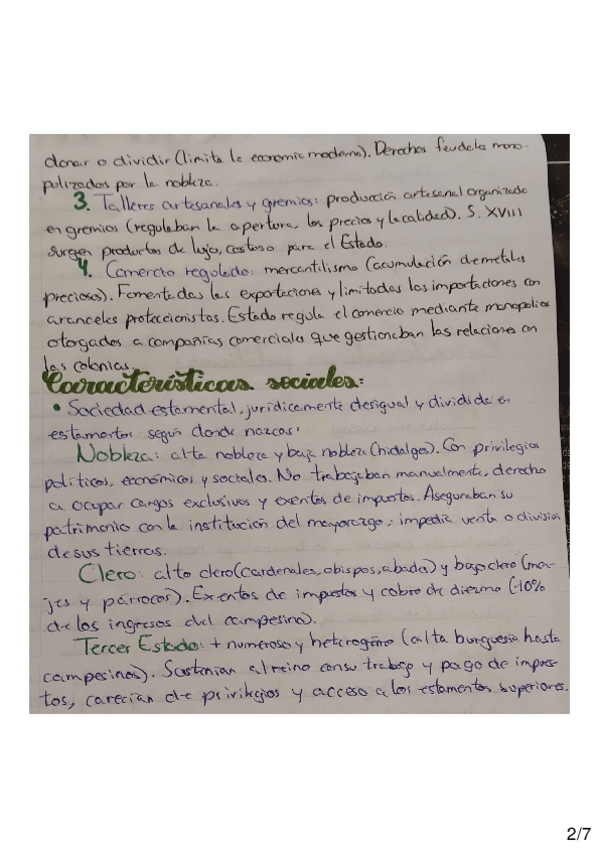 donar o dividir (limita la economía moderna). Derechos feudales mono-
polizados por la nobleza.
3. Talleres artesanales y gremios: producción artesanal organizada
en gremios (regulaban la apertura, los precios y la calidad). S. XVIII
surgen productos de lujo, costoso para el Estado.
4. Comercio regulado: mercantilismo (acumulación de metales
preciosos). Fomentadas las exportaciones y limitadas las importaciones con
aranceles proteccionistas. Estado regula el comercio mediante monopolios
otorgados a compañías comerciales que gestionaban las relaciones con
las colonias.
Características sociales:
• Sociedad estamental, jurídicamente desigual y dividida en
estamentos según donde nazcas:
Nobleza: alta nobleza y baja nobleza (hidalgos). Con privilegios
políticos, económicos y sociales. No trabajaban manualmente, derecho
a ocupar cargos exclusivos y exentos de impuestos. Aseguraban su
patrimonio con la institución del mayorazgo: impedía venta o división
de sus tierras.
Clero: alto clero (cardenales, obispos, abades) y bajo clero (mon-
jes y párrocos). Exentos de impuestos y cobro de diezmo (-10%
de los ingresos del campesino).
Tercer Estado: + numeroso y heterogéneo (alta burguesía hasta
campesinos). Sostenían al reino con su trabajo y pago de impues-
tos, carecían de privilegios y acceso a los estamentos superiores.
2/7